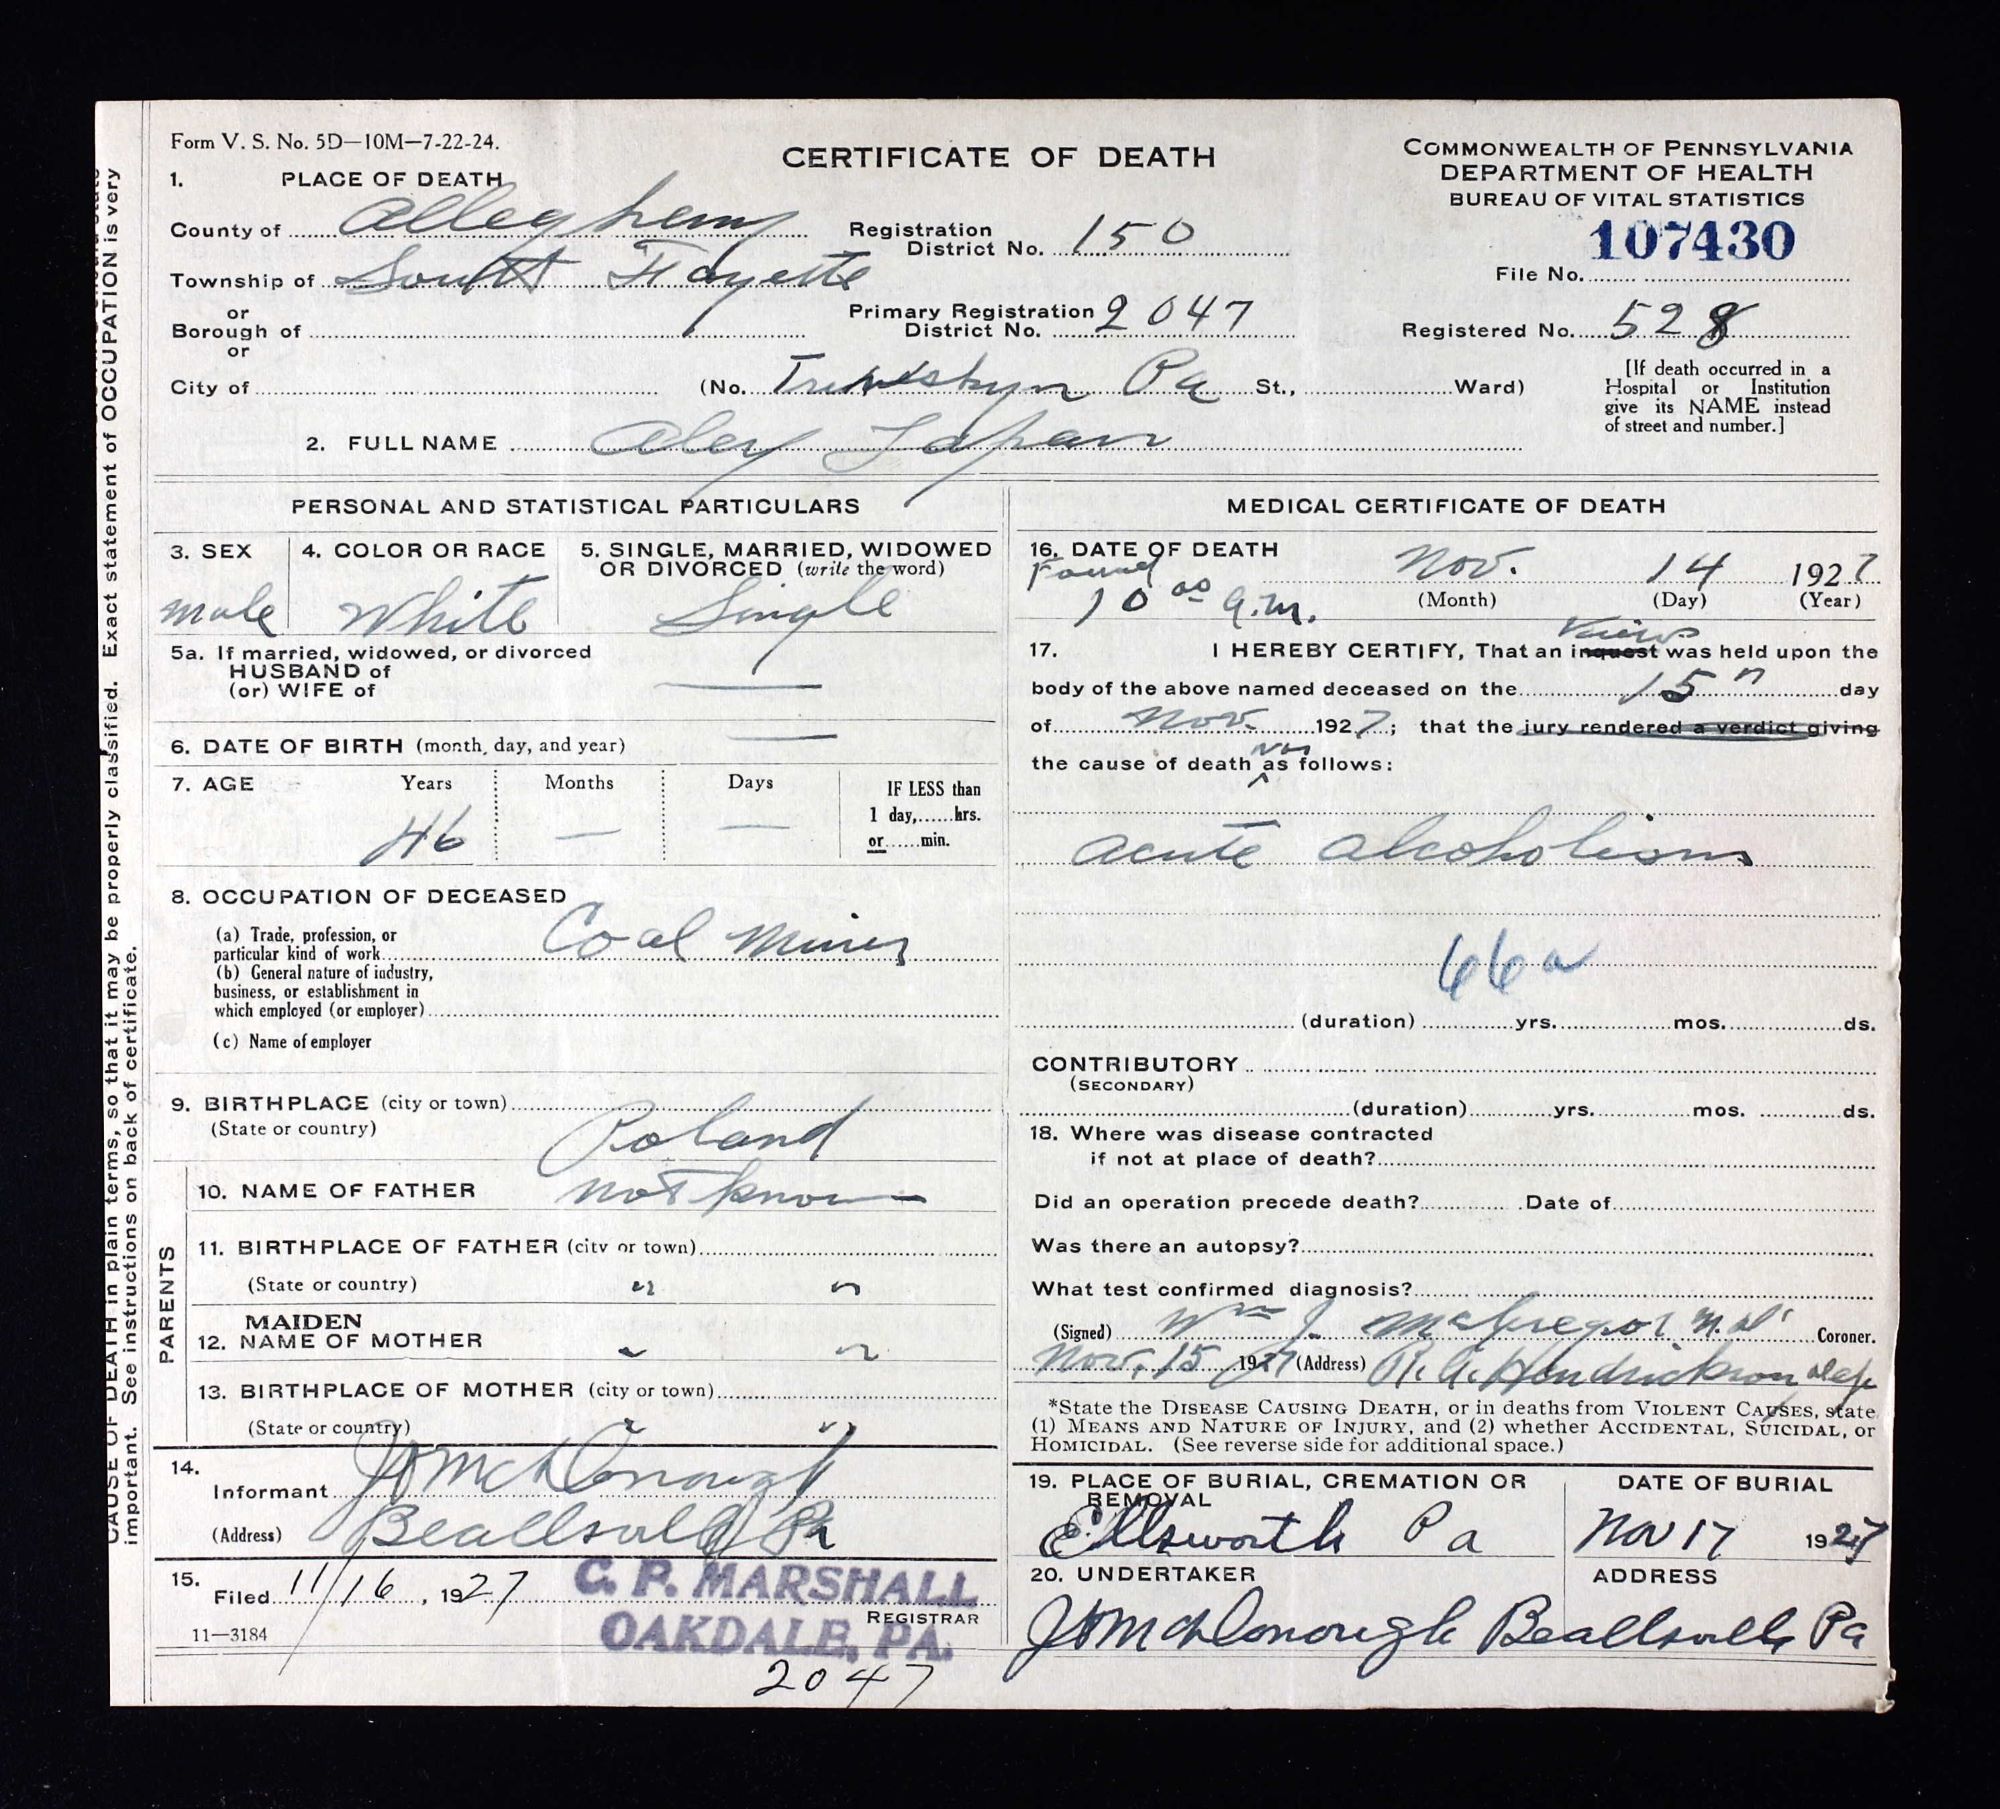 Form V. S. No. 5D—10M—7-22-24.
CERTIFICATE OF DEATH
COMMONWEALTH OF PENNSYLVANIA
DEPARTMENT OF HEALTH
BUREAU OF VITAL STATISTICS
107430
File No.
Registered No. 528
[If death occurred in a
Hospital or Institution
give its NAME instead
of street and number.]
1. PLACE OF DEATH
County of Allegheny
Registration
District No. 150
Township of South Fayette
or
Borough of
Primary Registration
District No. 2047
or
City of (No. Pa St., Ward)
2. FULL NAME
PERSONAL AND STATISTICAL PARTICULARS
3. SEX
male
4. COLOR OR RACE
White
5. SINGLE, MARRIED, WIDOWED
OR DIVORCED (write the word)
Single
5a. If married, widowed, or divorced
HUSBAND of
(or) WIFE of —
6. DATE OF BIRTH (month, day, and year) —
7. AGE Years Months Days
46 — —
IF LESS than
1 day,......hrs.
or......min.
8. OCCUPATION OF DECEASED
(a) Trade, profession, or
particular kind of work Coal Miner
(b) General nature of industry,
business, or establishment in
which employed (or employer)
(c) Name of employer
9. BIRTHPLACE (city or town)
(State or country) Poland
PARENTS
10. NAME OF FATHER not know
11. BIRTHPLACE OF FATHER (city or town)
(State or country) " "
12. MAIDEN
NAME OF MOTHER " "
13. BIRTHPLACE OF MOTHER (city or town)
(State or country) " "
14.
Informant McDonough
(Address) Beallsville Pa
15.
Filed 11/16, 1927
C. P. MARSHALL
OAKDALE, PA.
REGISTRAR
11—3184
2047
MEDICAL CERTIFICATE OF DEATH
16. DATE OF DEATH
Found
10 00 a.m.
Nov. 14 1927
(Month) (Day) (Year)
17. I HEREBY CERTIFY, That an inquest view was held upon the
body of the above named deceased on the 15" day
of Nov. 1927; that the jury rendered a verdict giving
the cause of death was as follows:
acute alcoholism
66a
(duration) yrs. mos. ds.
CONTRIBUTORY
(SECONDARY)
(duration) yrs. mos. ds.
18. Where was disease contracted
if not at place of death?
Did an operation precede death? Date of
Was there an autopsy?
What test confirmed diagnosis?
(Signed) Wm J. McGregor M.D. Coroner.
Nov. 15 1927 (Address) R. A. Hendrickson Dep
*State the DISEASE CAUSING DEATH, or in deaths from VIOLENT CAUSES, state
(1) MEANS AND NATURE OF INJURY, and (2) whether ACCIDENTAL, SUICIDAL, or
HOMICIDAL. (See reverse side for additional space.)
19. PLACE OF BURIAL, CREMATION OR
REMOVAL
Ellsworth Pa
DATE OF BURIAL
Nov 17 1927
20. UNDERTAKER
McDonough
ADDRESS
Beallsville Pa
CAUSE OF DEATH in plain terms, so that it may be properly classified. Exact statement of OCCUPATION is very
important. See instructions on back of certificate.